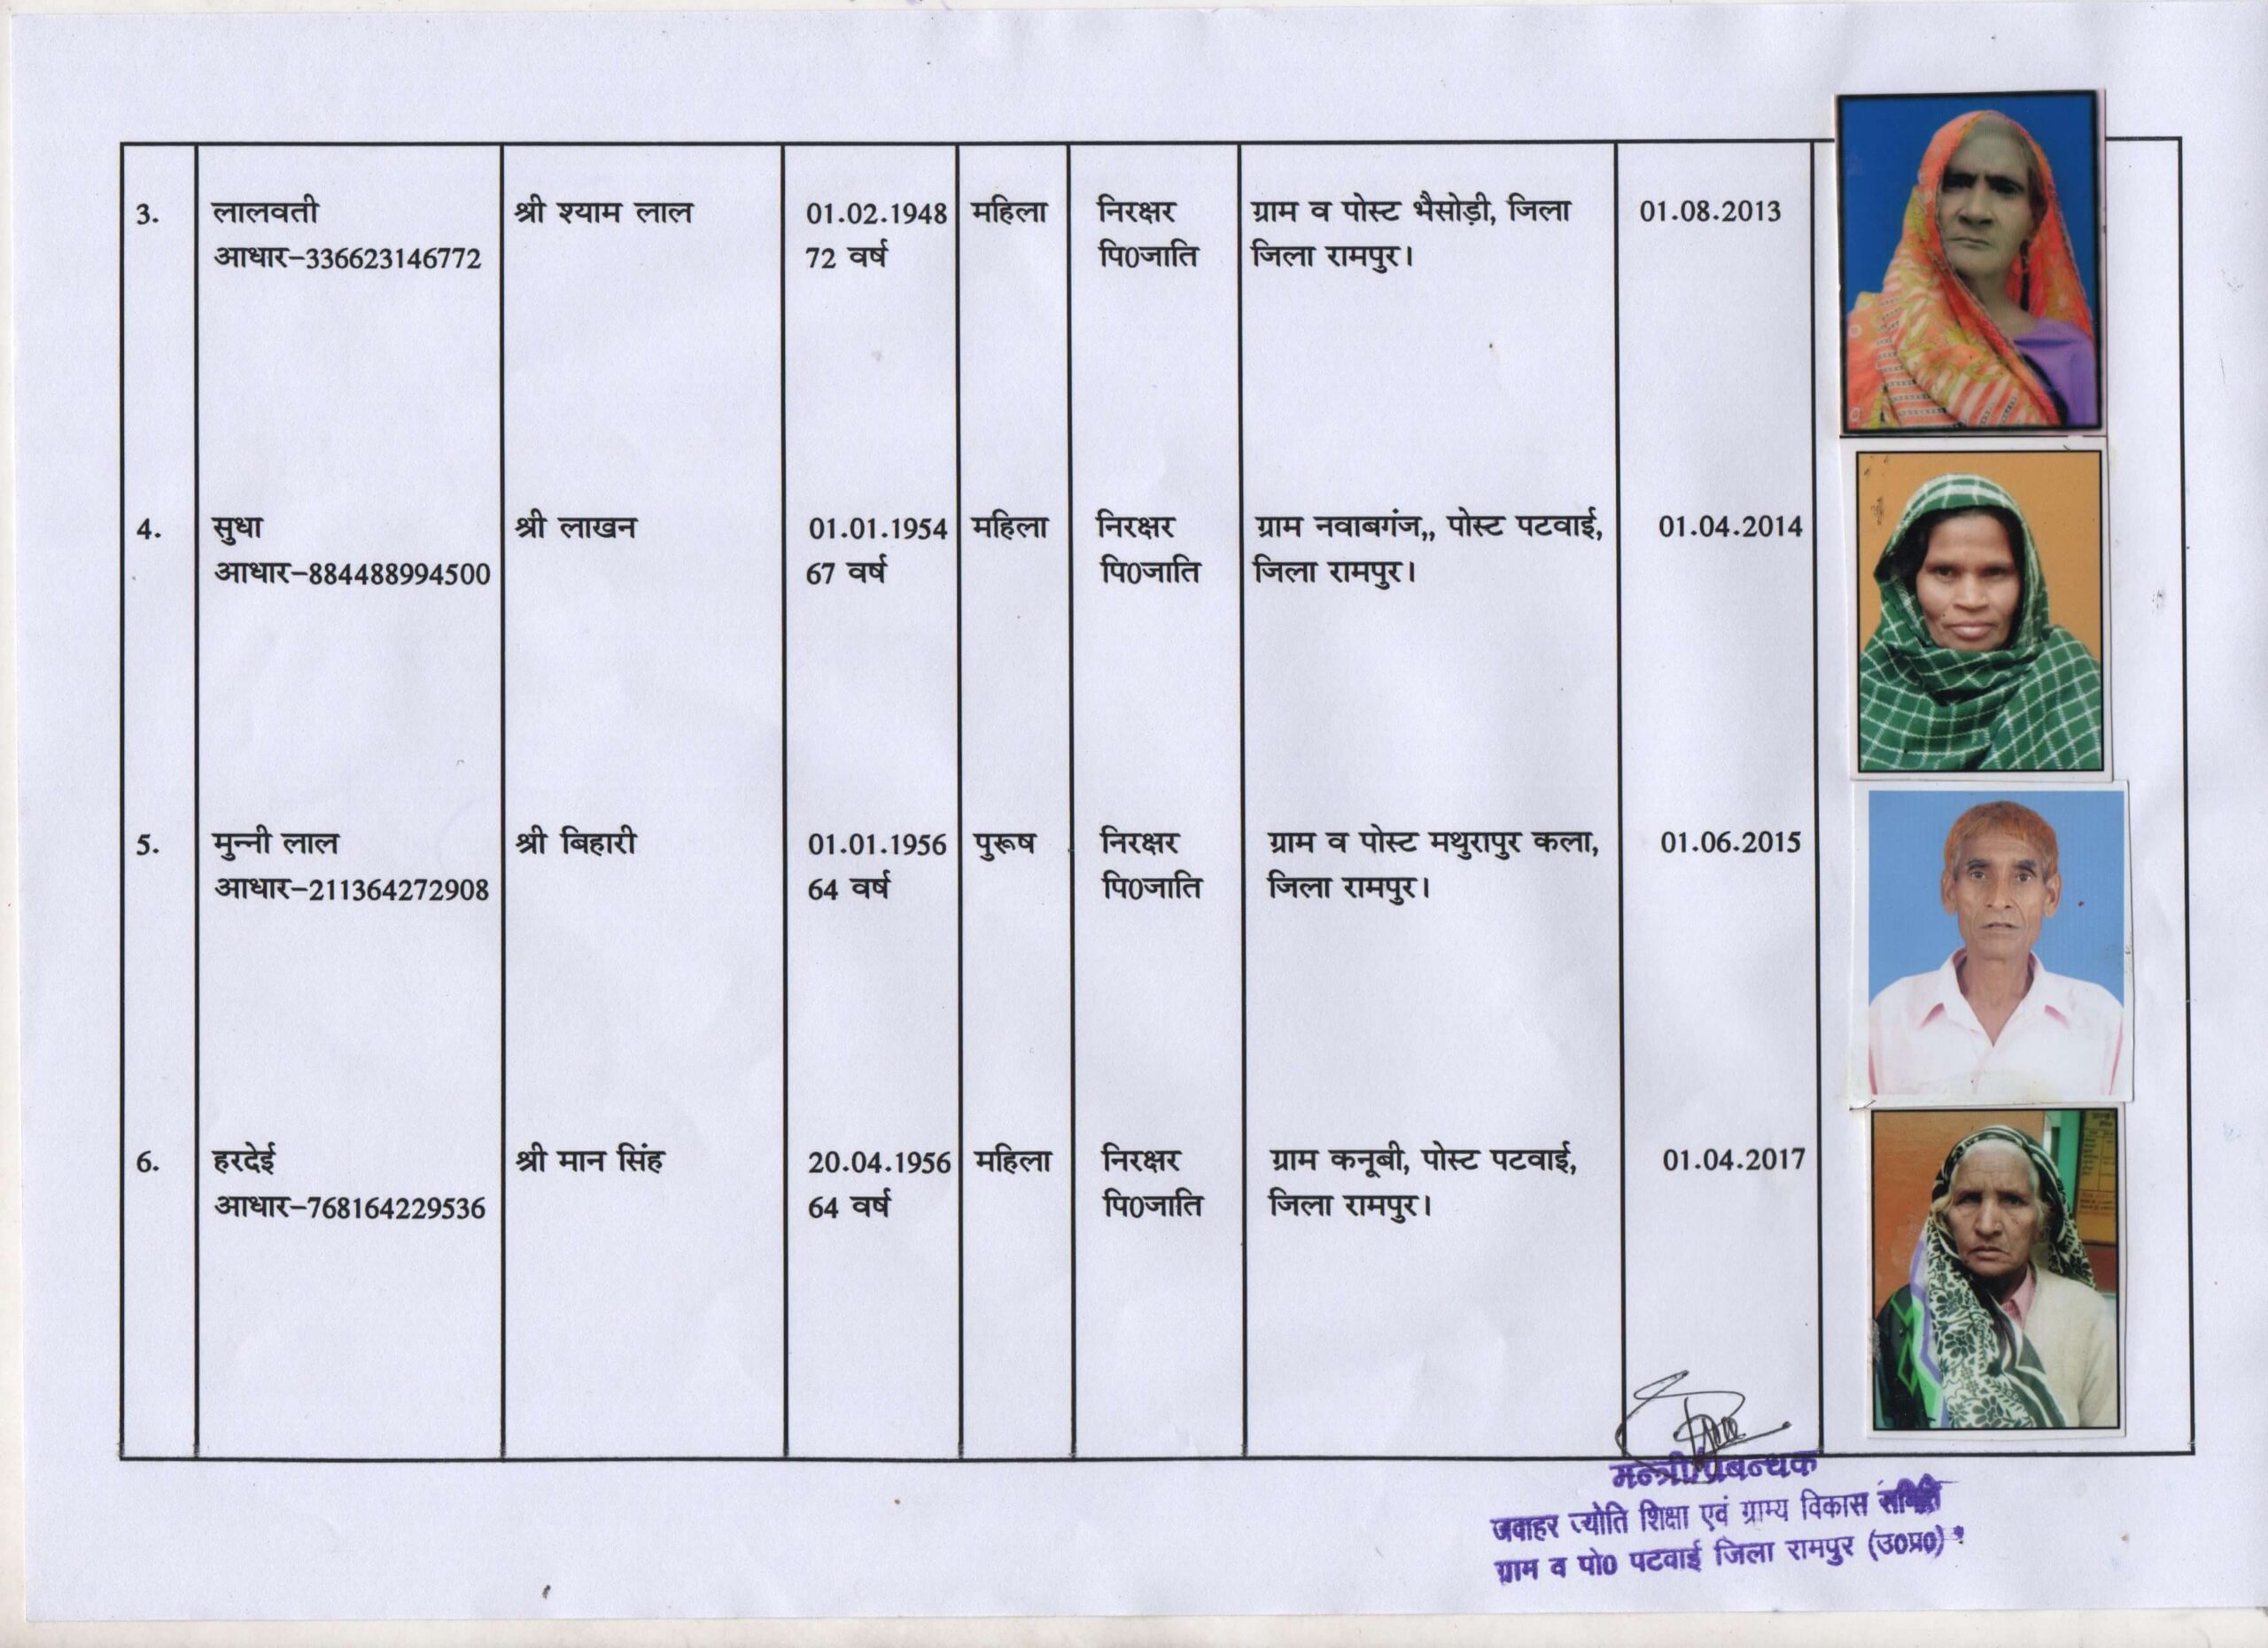 3. लालवती श्री श्याम लाल 01.02.1948 महिला निरक्षर ग्राम व पोस्ट भैसोड़ी, जिला 01.08.2013
आधार–336623146772 72 वर्ष पि0जाति जिला रामपुर।
4. सुधा श्री लाखन 01.01.1954 महिला निरक्षर ग्राम नवाबगंज,, पोस्ट पटवाई, 01.04.2014
आधार–884488994500 67 वर्ष पि0जाति जिला रामपुर।
5. मुन्नी लाल श्री बिहारी 01.01.1956 पुरूष निरक्षर ग्राम व पोस्ट मथुरापुर कला, 01.06.2015
आधार–211364272908 64 वर्ष पि0जाति जिला रामपुर।
6. हरदेई श्री मान सिंह 20.04.1956 महिला निरक्षर ग्राम कनूबी, पोस्ट पटवाई, 01.04.2017
आधार–768164229536 64 वर्ष पि0जाति जिला रामपुर।
मन्त्री/प्रबन्धक
जवाहर ज्योति शिक्षा एवं ग्राम्य विकास समिति
ग्राम व पो0 पटवाई जिला रामपुर (उ0प्र0)